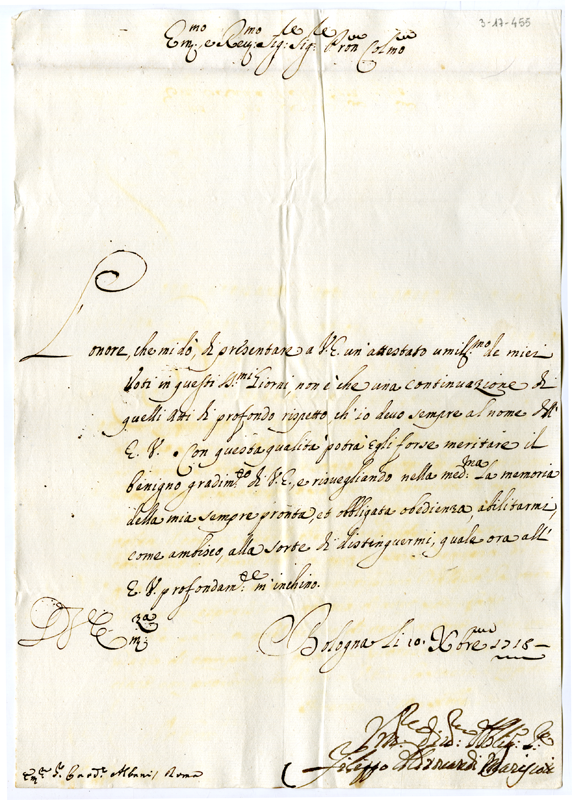 3-17-455
Em.mo e Rev.mo Sig.re Sig.re Pron Colmo
L'onore, che mi dò, di presentare a V.E. un'attestato umil.mo de miei
Voti in questi S.mi Giorni, non è che una continuazione di
quelli Atti di profondo rispetto, ch'io devo sempre al nome dell'
E.V. Con questa qualità potrà egli forse meritare il
benigno gradim.to di V.E., e risvegliando nella med.ma la memoria
della mia sempre pronta, et obbligata obedienza, abilitarmi,
come ambisco, alla sorte di distinguermi, quale ora all'
E.V. profondam.te m'inchino.
D V E
Bologna li 10. Xbre 1715
Filippo Marsigli
Em. Sr. Card. Albani, Roma